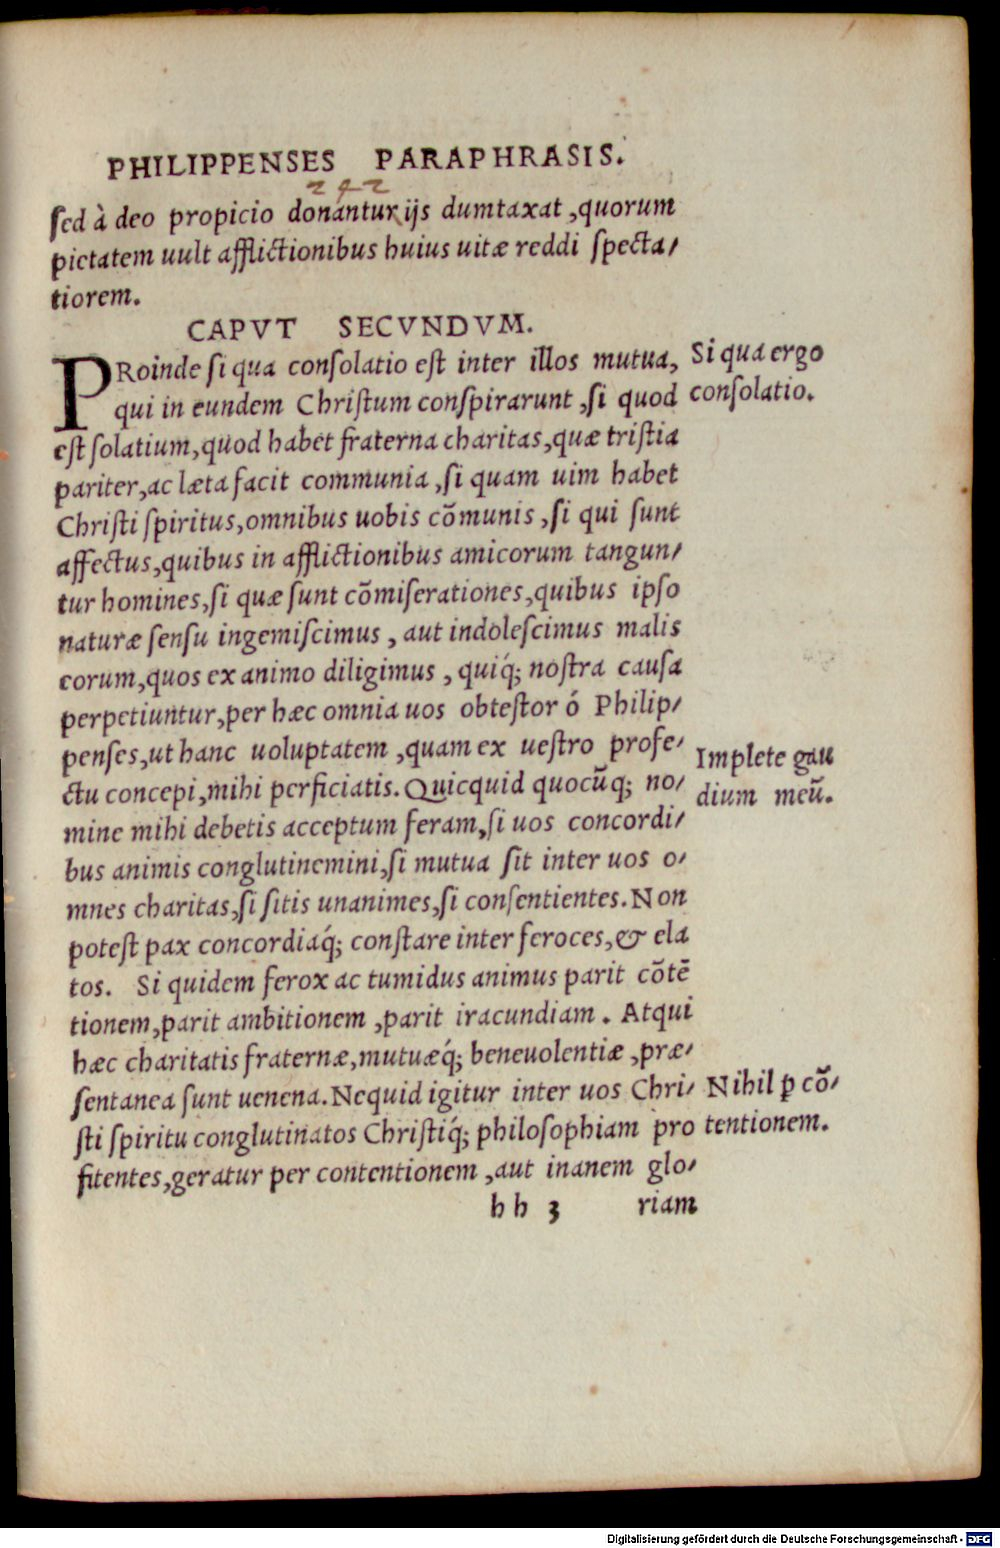 PHILIPPENSES PARAPHRASIS.
242
sed à deo propicio donantur, ijs dumtaxat, quorum
pietatem uult afflictionibus huius uitæ reddi specta/
tiorem.
CAPVT SECVNDVM.
PRoinde si qua consolatio est inter illos mutua,
qui in eundem Christum conspirarunt, si quod
est solatium, quod habet fraterna charitas, quæ tristia
pariter, ac læta facit communia, si quam uim habet
Christi spiritus, omnibus uobis cõmunis, si qui sunt
affectus, quibus in afflictionibus amicorum tangun/
tur homines, si quæ sunt cõmiserationes, quibus ipso
naturæ sensu ingemiscimus, aut indolescimus malis
eorum, quos ex animo diligimus, quiq́; nostra causa
perpetiuntur, per hæc omnia uos obtestor ó Philip/
penses, ut hanc uoluptatem, quam ex uestro profe/
ctu concepi, mihi perficiatis. Quicquid quocũq; no/
mine mihi debetis acceptum feram, si uos concordi/
bus animis conglutinemini, si mutua sit inter uos o/
mnes charitas, si sitis unanimes, si consentientes. Non
potest pax concordiaq́; constare inter feroces, & ela
tos. Si quidem ferox ac tumidus animus parit cõtẽ
tionem, parit ambitionem, parit iracundiam. Atqui
hæc charitatis fraternæ, mutuæq́; beneuolentiæ, præ/
sentanea sunt uenena. Nequid igitur inter uos Chri/
sti spiritu conglutinatos Christiq́; philosophiam pro
fitentes, geratur per contentionem, aut inanem glo/
hh 3 riam
Si qua ergo
consolatio.
Implete gau
dium meũ.
Nihil ꝑ cõ/
tentionem.
Digitalisierung gefördert durch die Deutsche Forschungsgemeinschaft - DFG